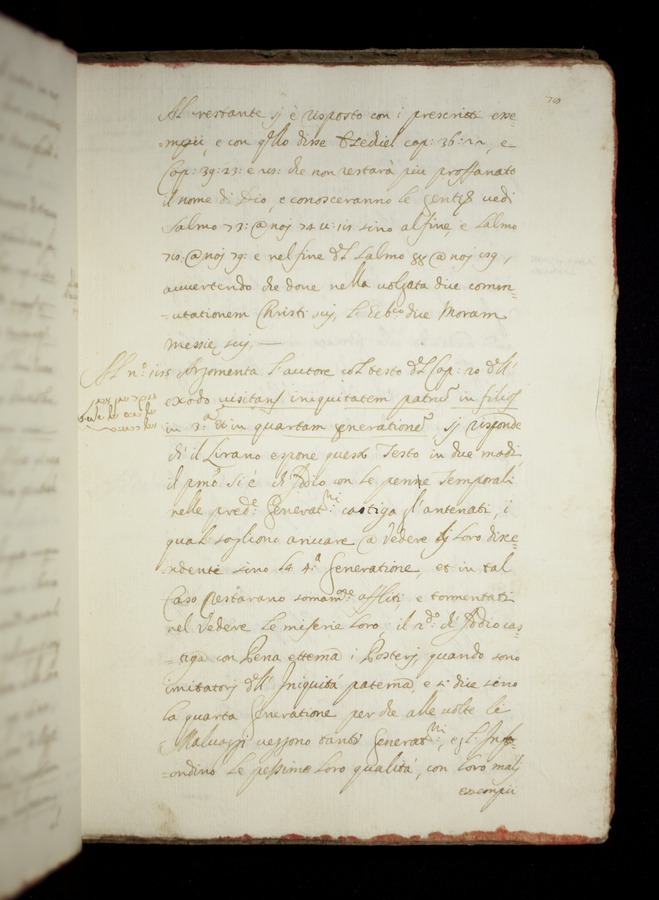 Al restante sj è risposto con i prescritti exe-
-mpii, e con q.llo disse Ezechiel cap: 36: e
Cap: 39: 23: e che non restarà più proffanato
il nome di Dio, e conosceranno le genti vedi
Salmo 73: @ noj 74 sino al fine, e Salmo
@ noj 79: e nel fine d'l Salmo 88 @ noj
avvertendo che dove nella volgata dice comm-
-utationem Christi tuj, l'Eb.co dice Moram
Messie tuj. —
Al n.o Argomenta l'autore col testo d'l Cap: 20 d'll'
exodo visitans iniquitatem patrum in filios
in 3.a et in quartam generatione, sj risponde
di il Lirano espone questo Testo in due modi,
il pmo si è di Iddio con le penne Temporali
nelle pred.e Generat.ni castiga gl'antenati, i
qual sogliono arivare a vedere lj loro disce-
-ndenti sino la 4.a Generatione, et in tal
Caso restarano afflitti, e tormentati
nel vedere le miserie loro; il 2.do di Iddio cas-
-tiga con Pena etterna i Posterj quando sono
imitatorj d'll' Iniquità paterna, e si dice sino
la quarta Generatione per che alle volte le
Malvaggi veggono tanti Generat.ni, e gl'Inf-
-ondino le pessime loro qualità, con loro malj
exempii